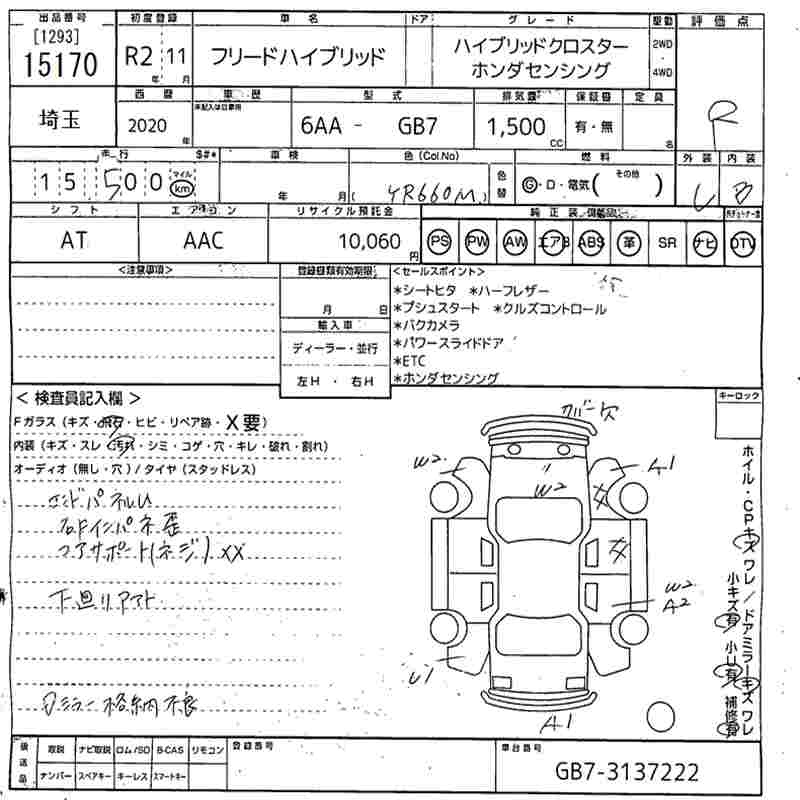 出品番号 初度登録 車名 ドア グレード 駆動 評価点
[1293]
15170 R2 年 11 月 フリードハイブリッド ハイブリッドクロスター ホンダセンシング 2WD・4WD
R
埼玉 西暦 車歴 型式 排気量 保証書 定員
2020 年 6AA - GB7 1,500 CC 有・無 名
走行 S#* 車検 色(Col.No) 燃料 外装 内装
15500 マイル km 年 月 ( YR660M ) 色替 G・D・電気( その他 )
シフト エアコン リサイクル預託金 純正装備品
AT AAC 10,060 円 PS PW AW エアB ABS 革 SR ナビ DTV
<注意事項> 登録書類有効期限 <セールスポイント>
月 日
*シートヒタ *ハーフレザー
*プシュスタート *クルズコントロール
*バクカメラ
*パワースライドドア
*ETC
*ホンダセンシング
輸入車
ディーラー・並行
左H ・ 右H
< 検査員記入欄 > キーロック
Fガラス(キズ・飛石・ヒビ・リペア跡・X要)
内装(キズ・スレ・汚れ・シミ・コゲ・穴・キレ・破れ・割れ)
オーディオ(無し・穴)/タイヤ(スタッドレス)
エンドパネルU
コアサポート(ネジ)XX
下廻リアアト
ミラー格納不良
カバー欠
W2
A1
W2
W2
A2
U1
A1
ホイル・CPキズワレ/ドアミラーキズワレ
小キズ有 小U有 補修有
後送品 取説 ナビ取説 ロム/SD B-CAS リモコン 登録番号 車台番号
ナンバー スペアキー キーレス スマートキー
GB7-3137222